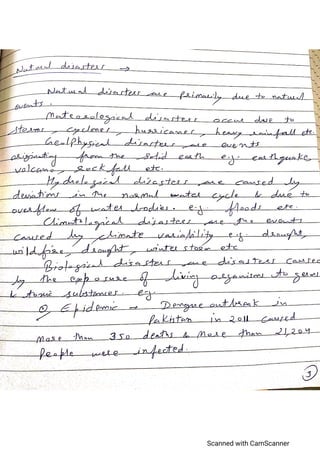 Natural disasters →
Natural disasters are primarily due to natural
events.
Meteorological disasters occur due to
storms, cyclones, hurricanes, heavy rainfall etc.
Geophysical disasters are events
originating from the solid earth e.g. earthquake,
volcano, rock fall etc.
Hydrological disasters are caused by
deviations in the normal water cycle & due to
overflow of water bodies. e.g. floods etc.
Climatological disasters are the events
caused by climate variability e.g. drought,
wild fire, drought, winter storm etc
Biological disasters are disasters caused
by the exposure of living organisms to germs
& toxic substances. e.g.
Epidemic → Dengue outbreak in
Pakistan in 2011 caused
more than 350 deaths & More than 21,204
People were infected.
3
Scanned with CamScanner